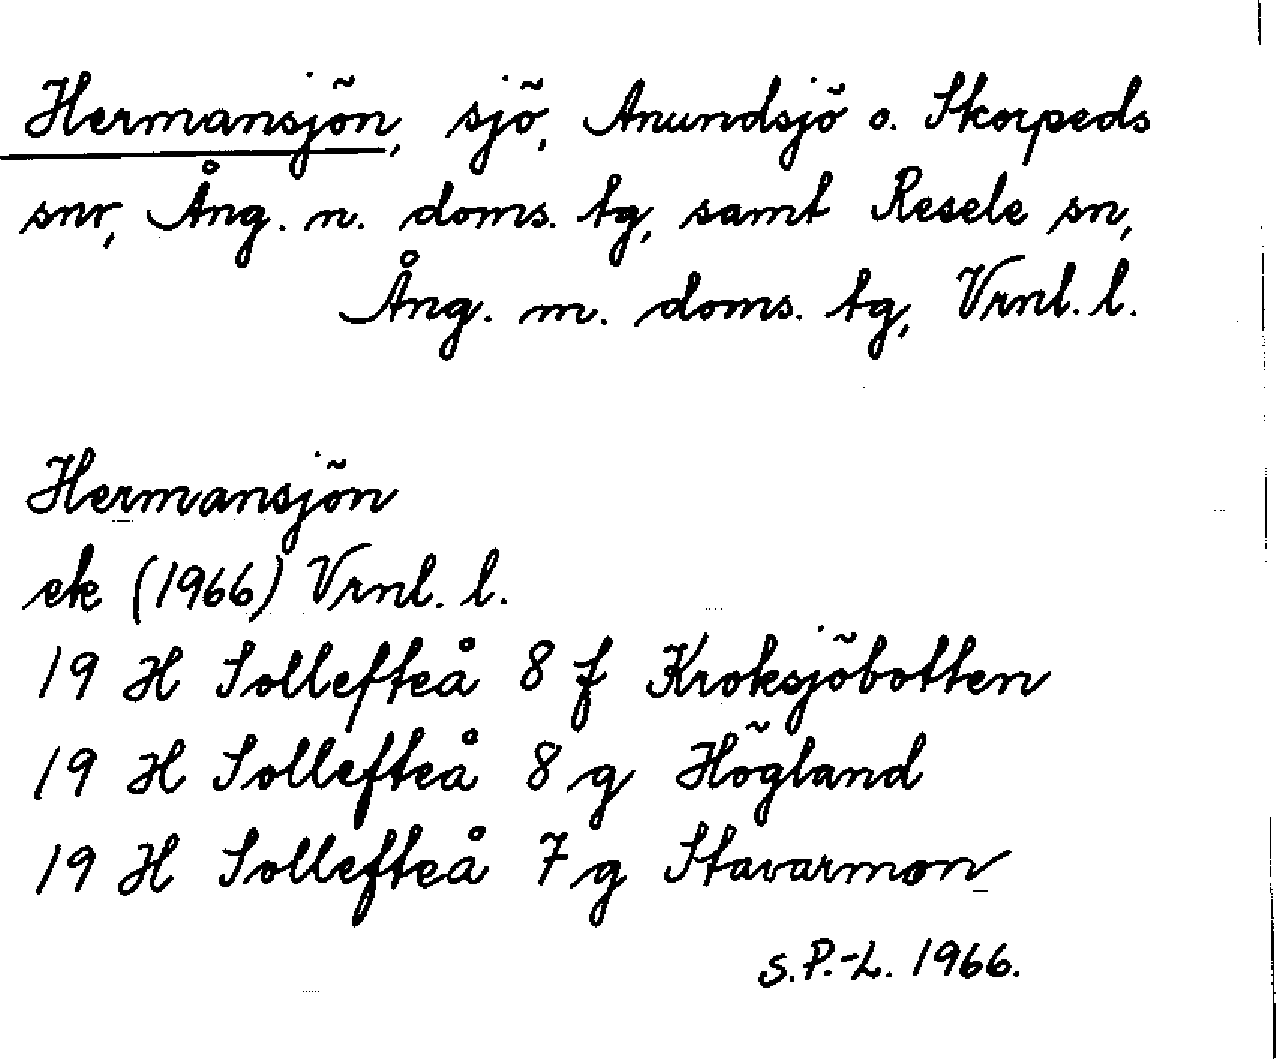 Hermansjön, sjö, Anundsjö o. Skorpeds
snr, Ång. n. doms. tg, samt Resele sn,
Ång. m. doms. tg, Vrnl. l.
Hermansjön
ek (1966) Vrnl. l.
19 H Sollefteå 8 f Kroksjöbotten
19 H Sollefteå 8 g Högland
19 H Sollefteå 7 g Stavarmon
S.P.-L. 1966.